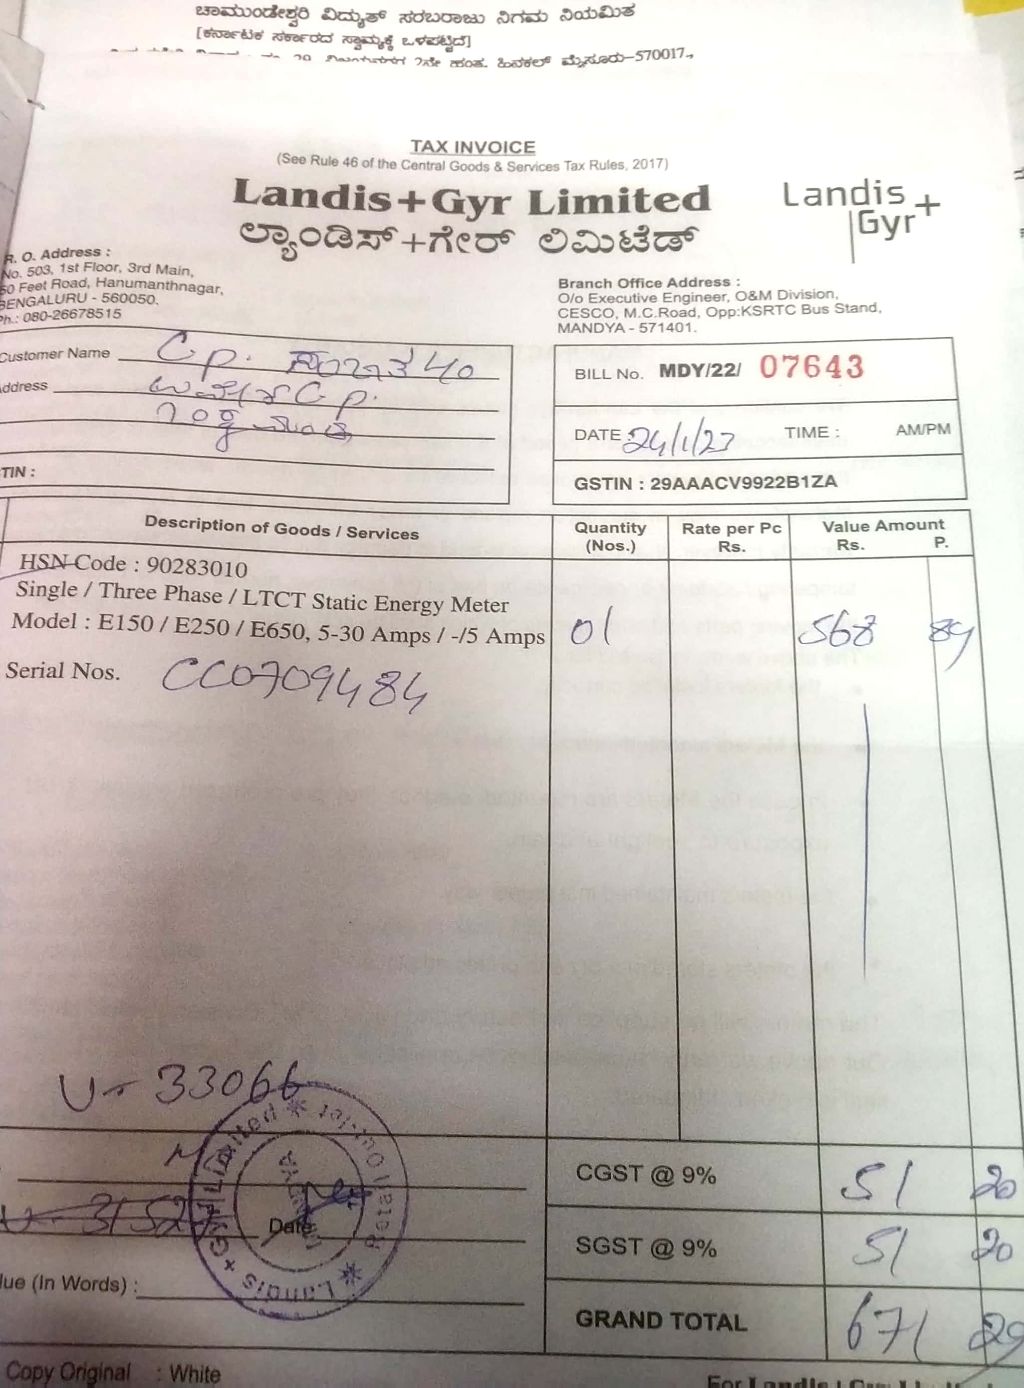 ಚಾಮುಂಡೇಶ್ವರಿ ವಿದ್ಯುತ್ ಸರಬರಾಜು ನಿಗಮ ನಿಯಮಿತ
[ಕರ್ನಾಟಕ ಸರ್ಕಾರದ ಸ್ವಾಮ್ಯಕ್ಕೆ ಒಳಪಟ್ಟಿದೆ]
2ನೇ ಹಂತ, ಹಿನಕಲ್ ಮೈಸೂರು-570017.,
TAX INVOICE
(See Rule 46 of the Central Goods & Services Tax Rules, 2017)
Landis+Gyr Limited
ಲ್ಯಾಂಡಿಸ್+ಗೇರ್ ಲಿಮಿಟೆಡ್
Landis
Gyr+
R. O. Address :
No. 503, 1st Floor, 3rd Main,
Feet Road, Hanumanthnagar,
BENGALURU - 560050.
Ph.: 080-26678515
Branch Office Address :
O/o Executive Engineer, O&M Division,
CESCO, M.C.Road, Opp:KSRTC Bus Stand,
MANDYA - 571401.
Customer Name C.p.
Address C.p.
TIN :
BILL No. MDY/22/ 07643
DATE : 24/1/23 TIME : AM/PM
GSTIN : 29AAACV9922B1ZA
Description of Goods / Services
Quantity (Nos.)
Rate per Pc Rs.
Value Amount
Rs. P.
HSN Code : 90283010
Single / Three Phase / LTCT Static Energy Meter
Model : E150 / E250 / E650, 5-30 Amps / -/5 Amps 01 568 89
Serial Nos. CC0709484
33066
CGST @ 9% 51 20
SGST @ 9% 51 20
Date
Landis + Gyr Limited
(In Words) :
GRAND TOTAL 671 29
Copy Original : White
For Landis